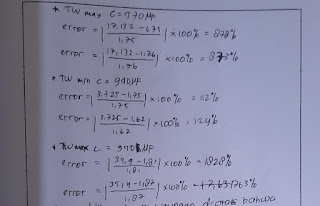 * TW max C = 470 µF
error = | 17,132 - 1,75 / 1,75 | × 100% = 878%
error = | 17,132 - 1,76 / 1,96 | × 100% = 873%
* TW min C = 940 µF
error = | 3.725 - 1,75 / 1,75 | × 100% = 112%
error = | 3.725 - 1,62 / 1,62 | × 100% = 129%
* TW max C = 940 µF
error = | 34,9 - 1,81 / 1,81 | × 100% = 1828%
error = | 34,9 - 1,87 / 1,87 | × 100% =
bahwa